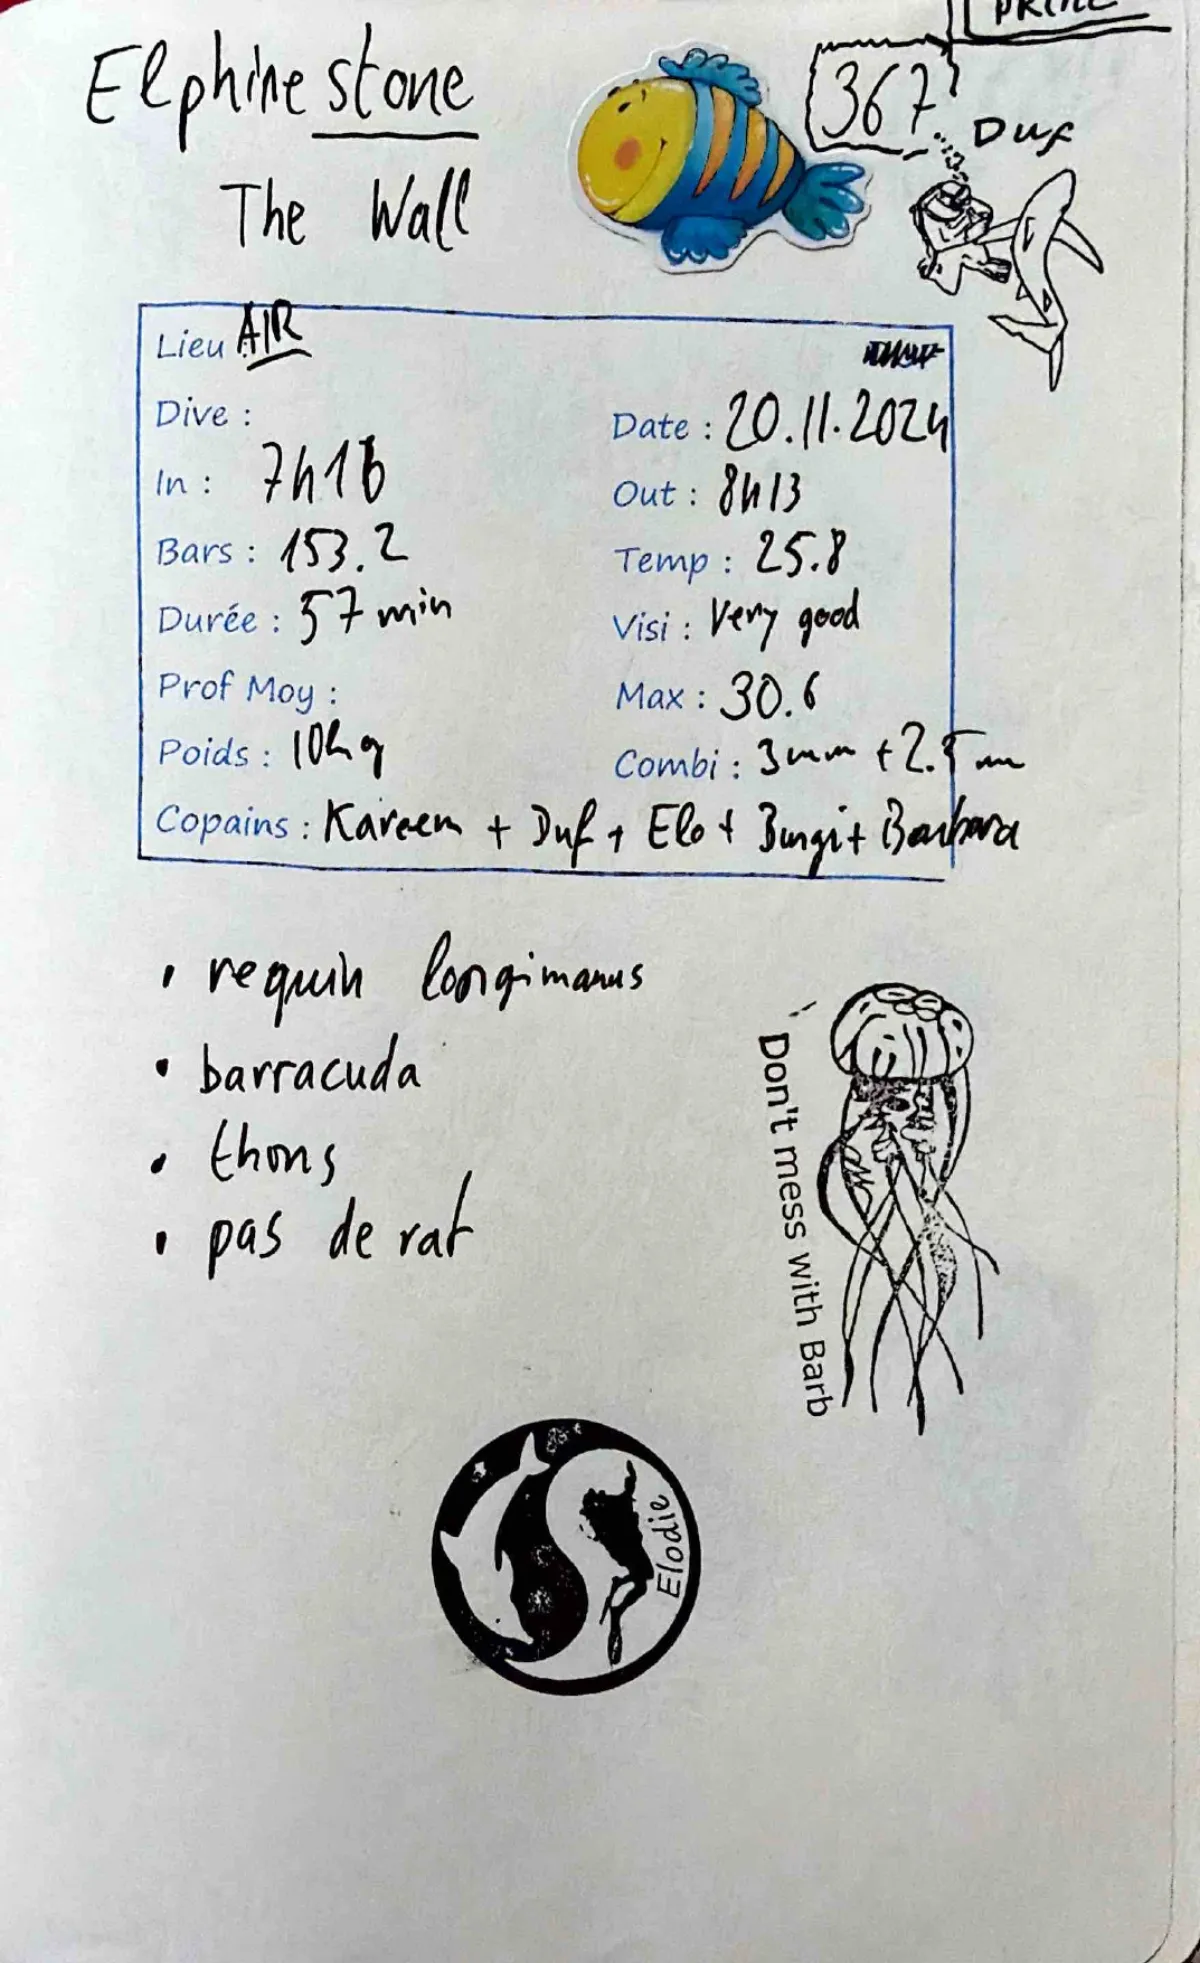 Elphinestone
The Wall
367
Duf
Lieu AIR
Dive :
Date : 20.11.2024
In : 7h16
Out : 8h13
Bars : 153.2
Temp : 25.8
Durée : 57 min
Visi : Very good
Prof Moy :
Max : 30.6
Poids : 10kg
Combi : 3mm + 2.5mm
Copains : Kareem + Duf + Elo + Bungi + Barbara
• requin longimanus
• barracuda
• thons
• pas de rat
Don't mess with Barb
Elodie